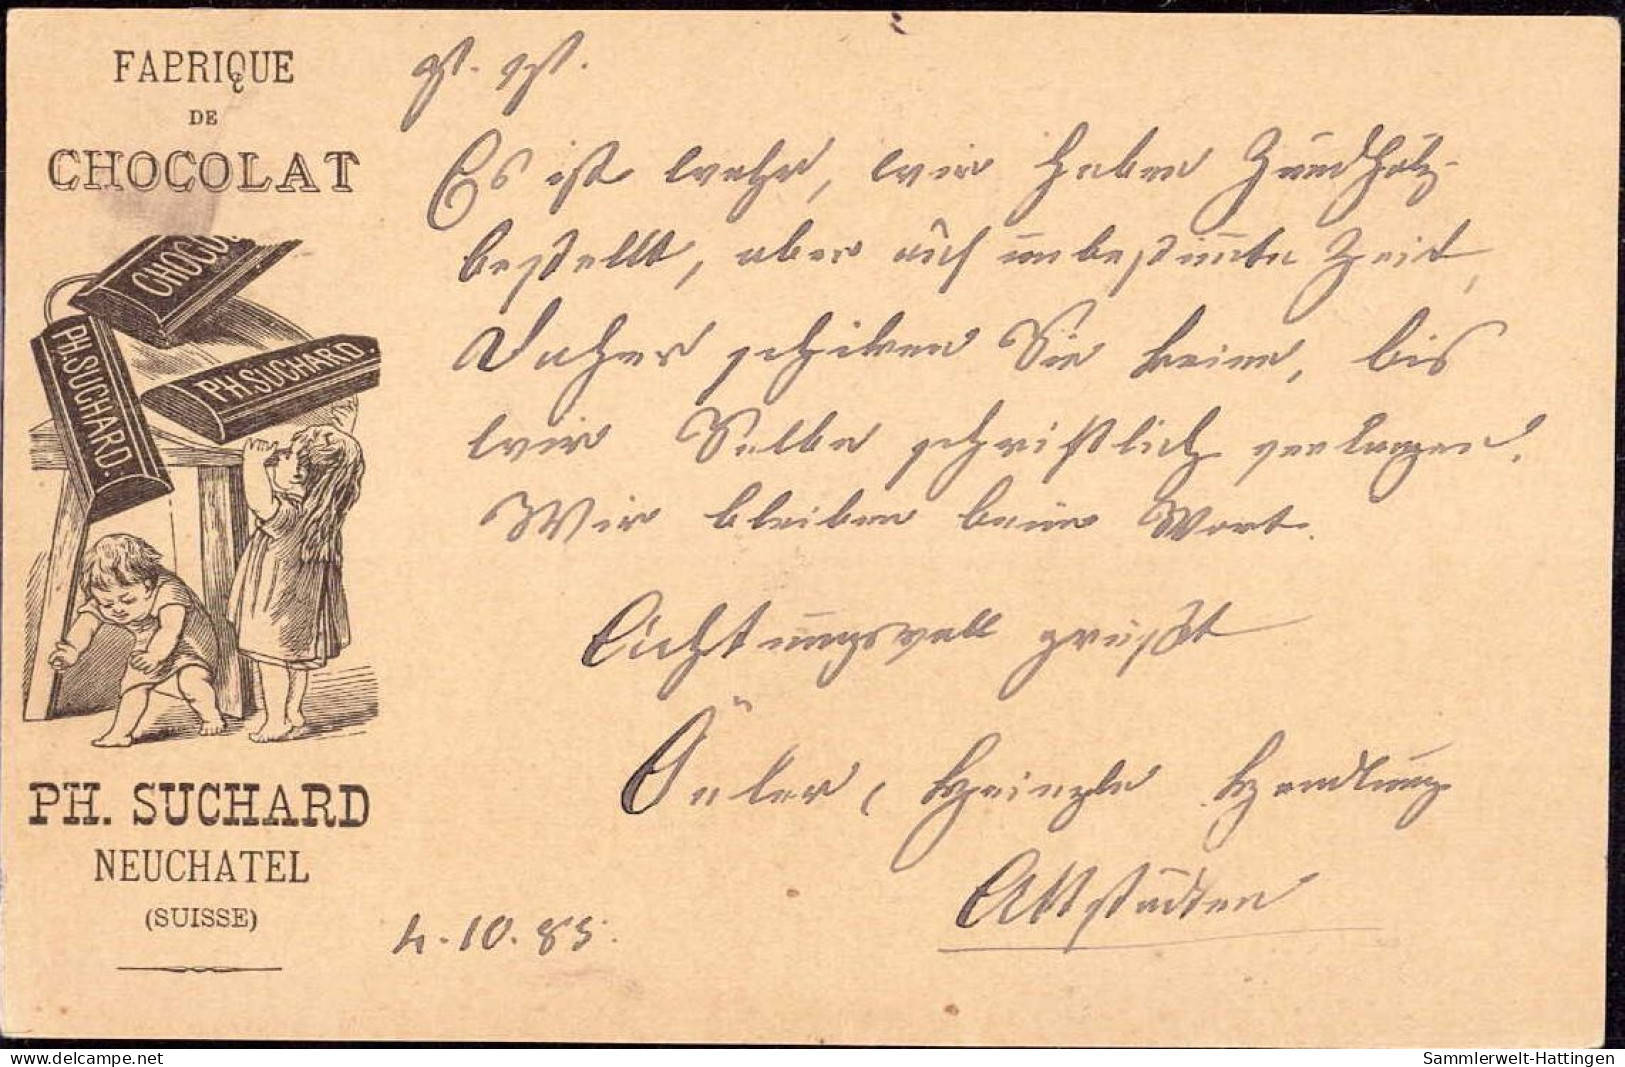 FABRIQUE
DE
CHOCOLAT
CHOCO
PH. SUCHARD.
PH. SUCHARD.
PH. SUCHARD
NEUCHATEL
(SUISSE)
Es ist wahr, wir haben Zündholz
bestellt, aber auf unbestimmte Zeit,
Daher schiken Sie keine, bis
wir Selbe schriftlich verlangen.
Wir bleiben beim Wort.
Achtungsvoll grüßt
Heinzle Handlung
Altstädten
4. 10. 85.
Sammlerwelt-Hattingen